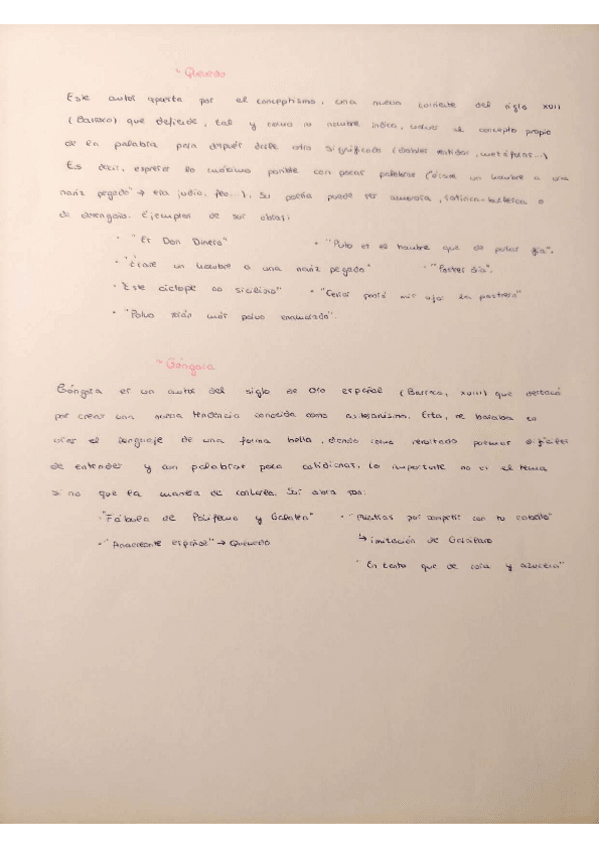 Quevedo
Este autor apuesta por el conceptismo, una nueva corriente del siglo XVII
(Barroco) que defiende, tal y como su nombre indica, el concepto propio
de la palabra para después darle otro significado (dobles sentidos, metáforas...)
Es decir, expresar lo máximo posible con pocas palabras ("érase un hombre a una
nariz pegado" → era judío, feo...). Su poesía puede ser amorosa, satírico-burlesca o
de desengaño. Ejemplos de sus obras:
· "Es Don Dinero" · "Puto es el hombre que de putas fía".
· "Érase un hombre a una nariz pegado" ·
· "Este cíclope no siciliano" · "Cerrar podrá mis ojos la postrera"
· "Polvo serán más polvo enamorado".
Góngora
Góngora es un autor del siglo de Oro español (Barroco, XVIII) que destacó
por crear una nueva tendencia conocida como culteranismo. Esta, se basaba en
usar el lenguaje de una forma bella, dando como resultado poemas difíciles
de entender y con palabras poco cotidianas. Lo importante no es el tema
si no que la manera de contarla. Su obra son:
· "Fábula de Polifemo y Galatea" · "Mientras por competir con tu cabello"
· "Anacreonte español" → Quevedo ↳ imitación de Garcilaso
"En tanto que de rosa y azucena"